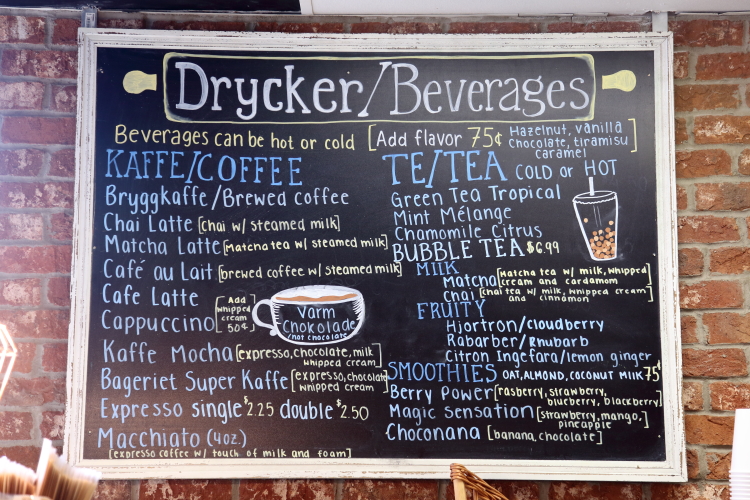 Drycker/Beverages
Beverages can be hot or cold [Add flavor 75¢ Hazelnut, vanilla
chocolate, tiramisu
caramel]
KAFFE/COFFEE
Bryggkaffe/Brewed coffee
Chai Latte [chai w/ steamed milk]
Matcha Latte [Matcha tea w/ steamed milk]
Café au Lait [brewed coffee w/ steamed milk]
Cafe Latte
Cappuccino
[Add
whipped
cream
50¢]
Varm
Chokolade
/hot chocolate
Kaffe Mocha [expresso, chocolate, milk
whipped cream]
Bageriet Super Kaffe [expresso, chocolate
whipped cream]
Expresso single $2.25 double $2.50
Macchiato (4oz.)
[expresso coffee w/ touch of milk and foam]
TE/TEA COLD or HOT
Green Tea Tropical
Mint Mélange
Chamomile Citrus
BUBBLE TEA $6.99
MILK
Matcha [Matcha tea w/ milk, whipped
cream and cardamom]
Chai [chai tea w/ milk, whipped cream
and cinnamon]
FRUITY
Hjortron/cloudberry
Rabarber/Rhubarb
Citron Ingefära/lemon ginger
SMOOTHIES OAT, ALMOND, COCONUT MILK 75¢
Berry Power [rasberry, strawberry,
blueberry, blackberry]
Magic Sensation [strawberry, mango,
pineapple]
Choconana [banana, chocolate]